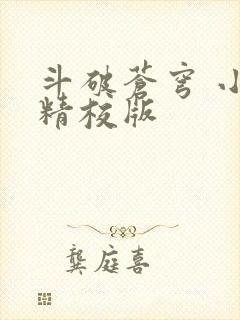 斗破苍穹 小
精校版
龚庭喜